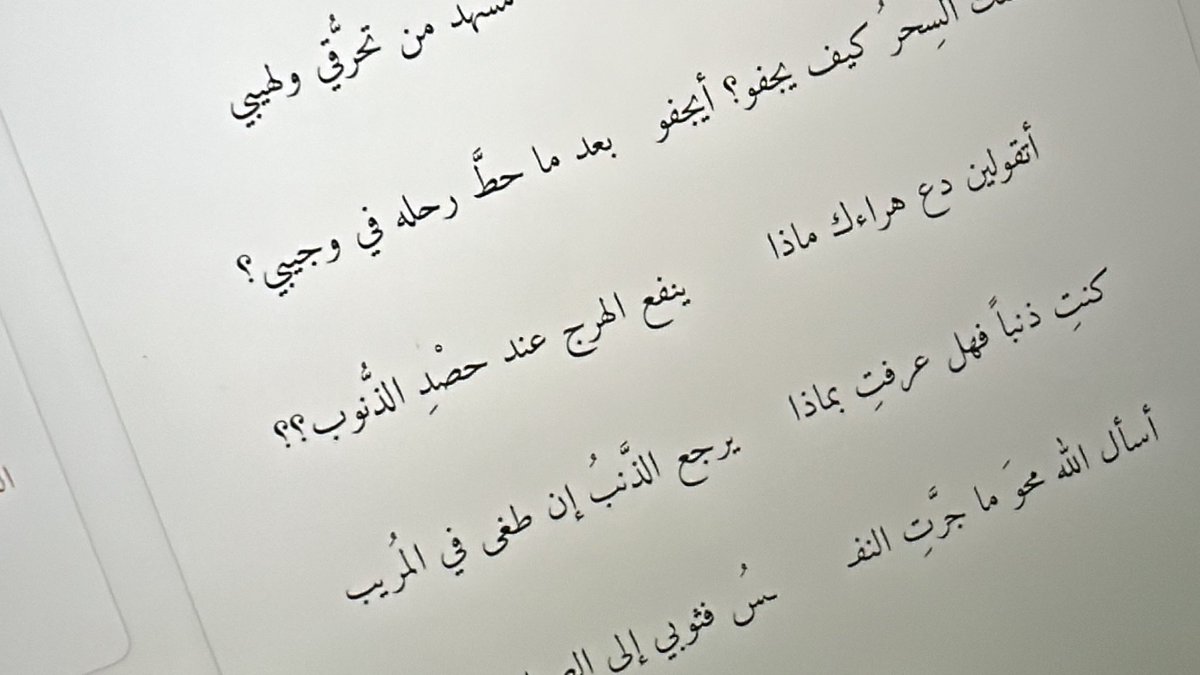 من تحرُّقي ولهيبي
السِحرُ كيف يجفو؟ أيجفو
بعد ما حطَّ رحله في وجيبي؟
أتقولين دع هراءك ماذا
ينفع الهرج عند حصْدِ الذنُّوب؟؟
كنتِ ذنباً فهل عرفتِ بماذا
يرجع الذَّنبُ إن طغى في المُريب
أسأل الله محوَ ما جرَّتِ النفـ
ـسُ فثوبي إلى